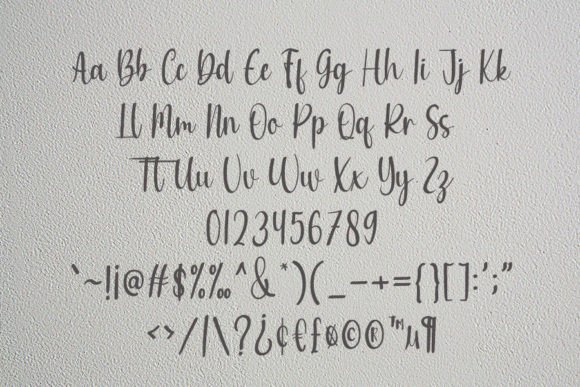 Aa Bb Cc Dd Ee Ff Gg Hh Ii Jj Kk
Ll Mm Nn Oo Pp Qq Rr Ss
Tt Uu Vv Ww Xx Yy Zz
0123456789
`~!¡@#$%‰^&*)(_-+={}[]:';"
<>/|\?¿¢€ƒø©®™µ¶